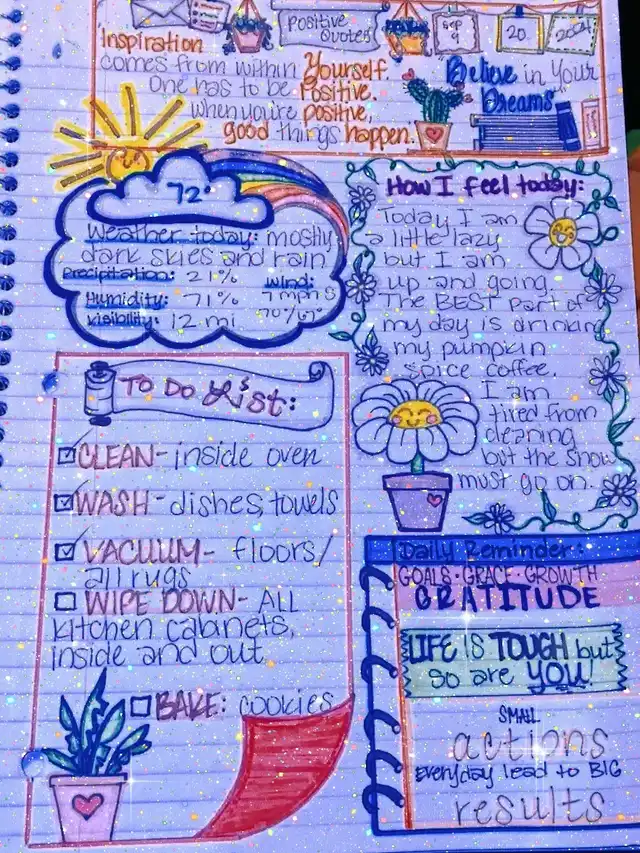 Positive
Quotes
Sep
9
20
2024
Inspiration
comes from within Yourself.
One has to be Positive.
when you're positive,
good things happen.
Believe in Your
Dreams
72°
Weather today: mostly
dark skies and rain
Precipitation: 21%
Humidity: 71%
Visibility: 12 mi
Wind:
7 mph S
70°/67°
How I feel today:
Today I am
a little lazy
but I am
up and going.
The BEST part of
my day is drinking
my pumpkin
spice coffee.
I am
tired from
cleaning
but the show
must go on.
TO DO List:
CLEAN- inside oven
WASH- dishes, towels
VACUUM- floors/
all rugs
WIPE DOWN- ALL
kitchen cabinets,
inside and out
BAKE: cookies
Daily Reminder:
GOALS·GRACE·GROWTH
GRATITUDE
LIFE IS TOUGH but
so are YOU!
SMALL
actions
Everyday lead to BIG
results